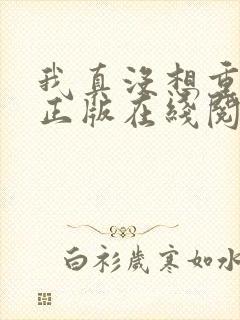 我真没想重
正版在线阅
白衫岁寒如水